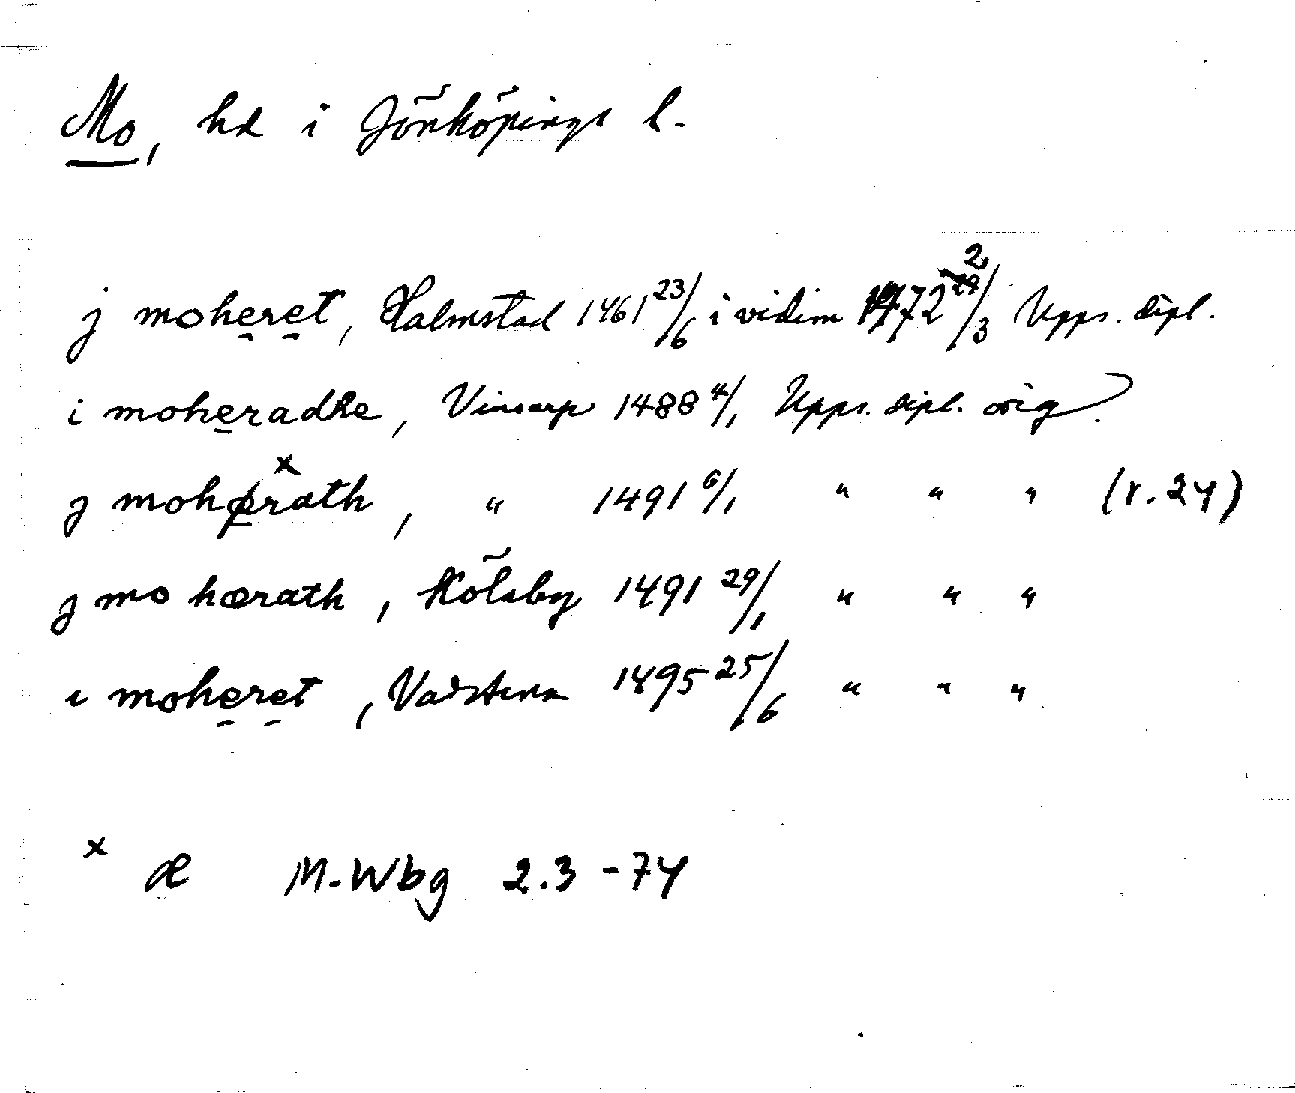 Mo, hd i Jönköpings l.
j moheret, Halmstad 1461 23/6 i vidim 1472 2/3 Upps. dipl.
i moheradhe, Vinsarp 1488 4/1 Upps. dipl. orig.
j moh rath, " 1491 6/1 " " " (r. 24)
j mo hærath, Kölaby 1491 29/1 " " "
i moheret, Vadstena 1495 25/6 " " "
x æ M-Wbg 2.3 -74